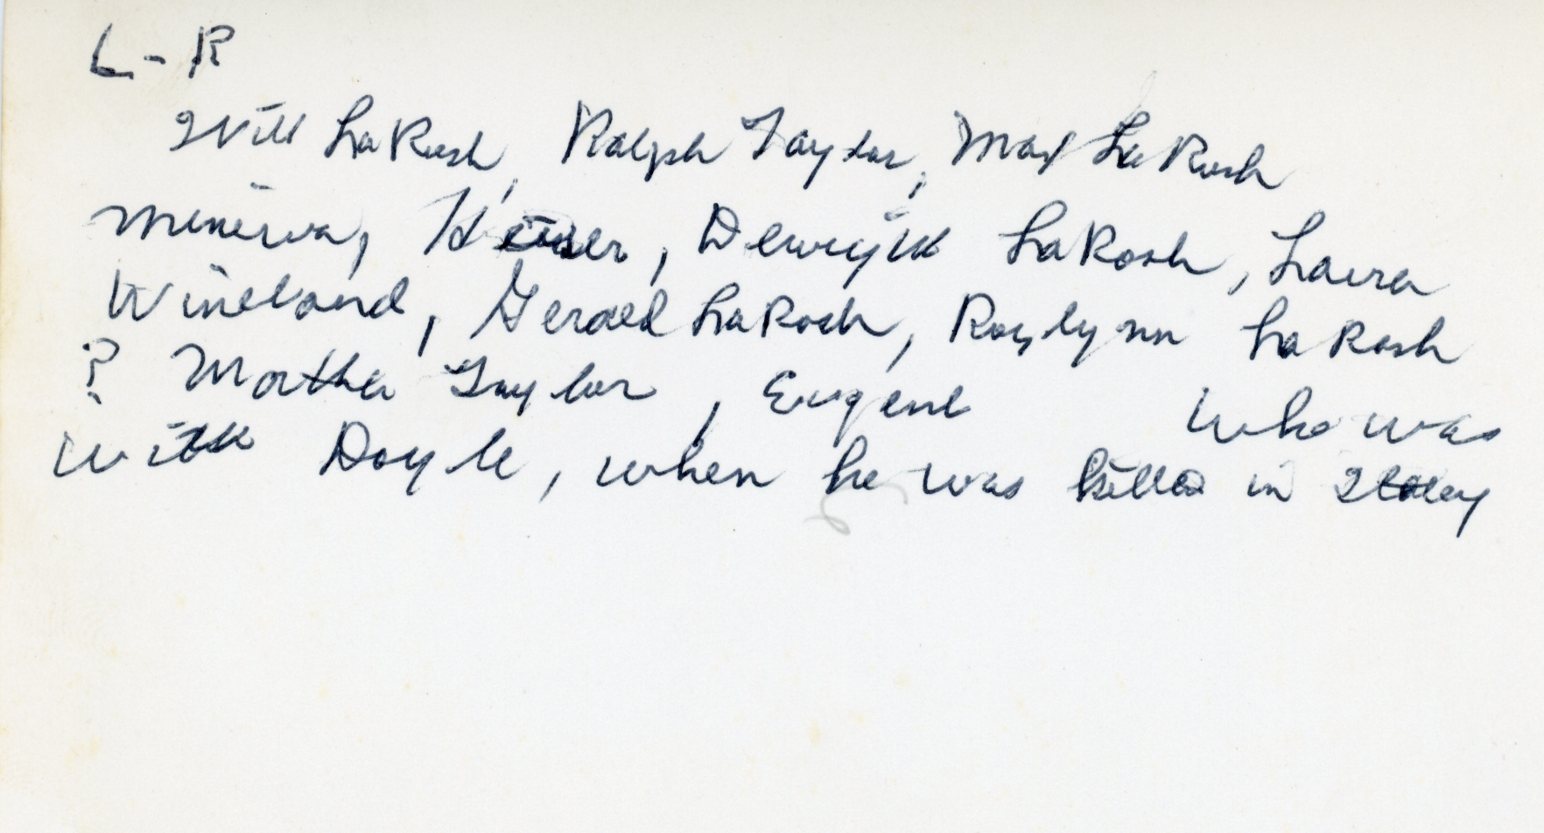 L - R
Will LaRosh, Ralph Taylor, Max LaRosh
Minerva, Kiser, LaRosh, Laura
Wineland, Gerald LaRosh, Roylynn LaRosh
? Martha Taylor, Eugene who was
with Doyle, when he was killed in Italy